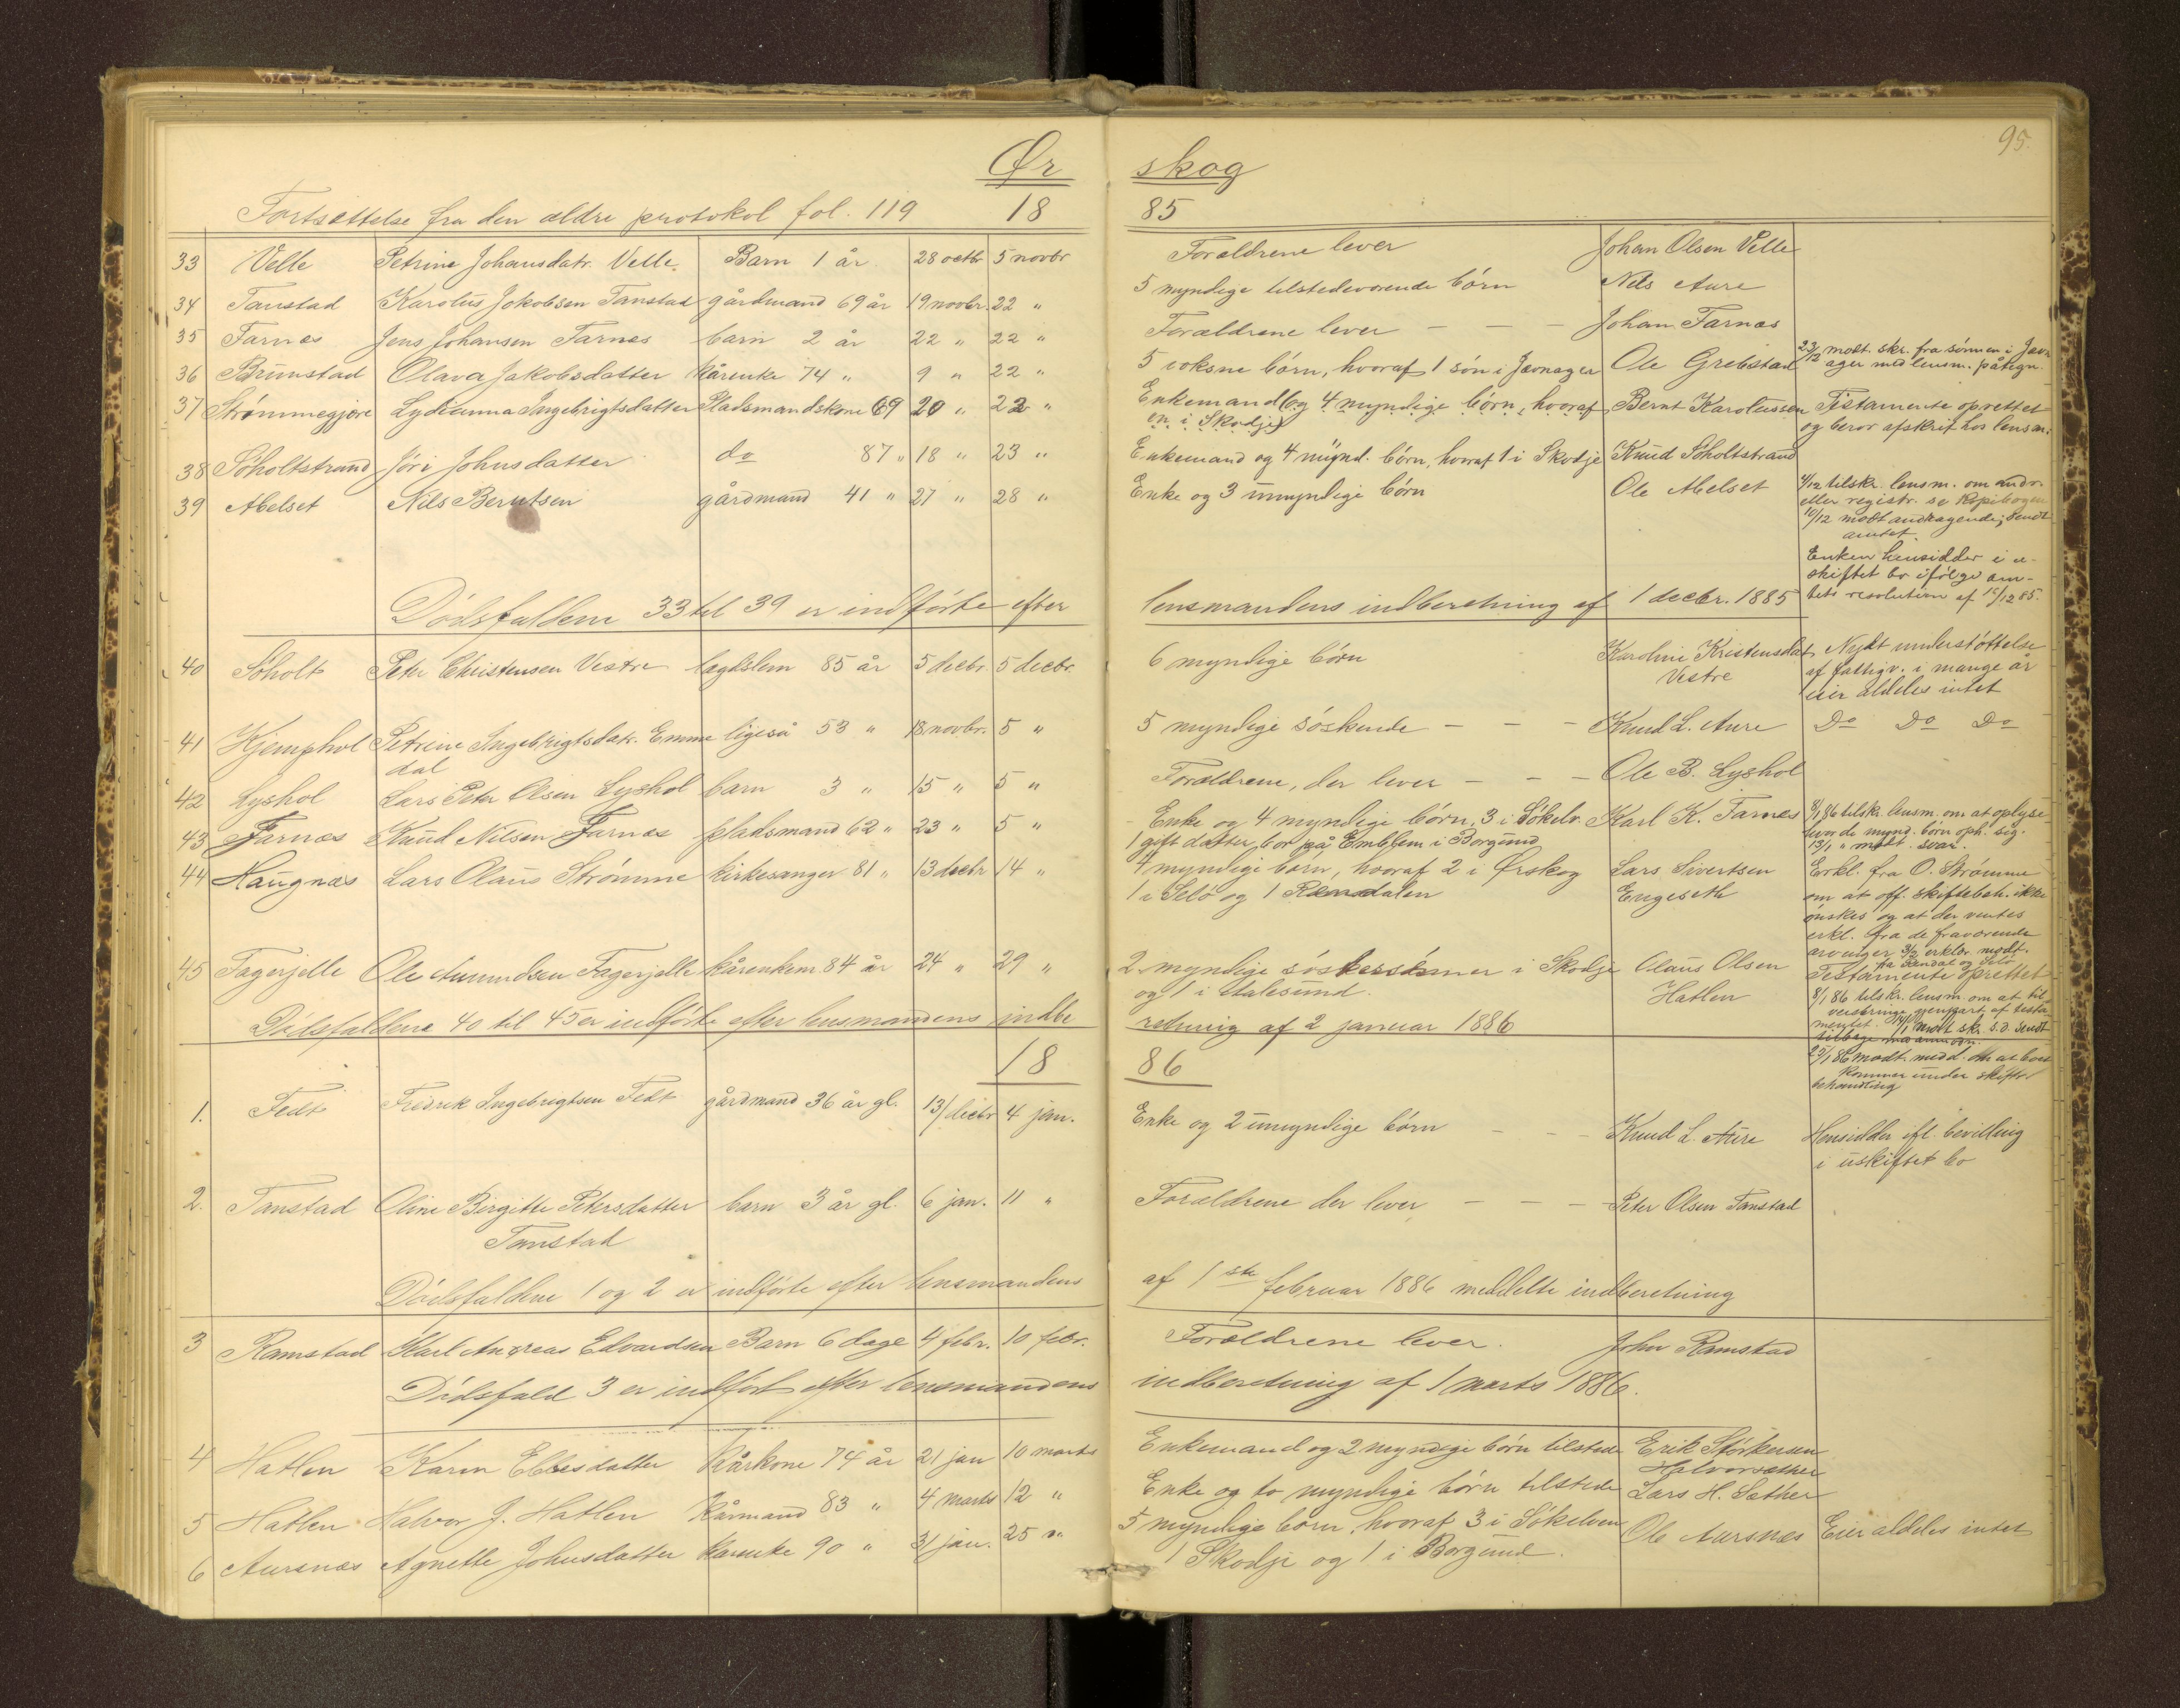 95.
Ør skog
Fortsættelse fra den ældre protokol fol. 119 18 85
33 Velle Petrine Johansdatr. Velle. Barn 1 år 28 octbr 5 novbr Forældrene lever Johan Olsen Velle
34 Tanstad Karolus Jakobsen Tanstad gårdmand 69 år 19 novbr. 22 " 5 myndige tilstedeværende börn Nils Aure
35 Farnæs Jens Johansen Farnæs barn 2 år 22 " 22 " Forældrene lever — — — Johan Farnæs
36 Brunstad Olava Jakobsdatter kårenke 74 " 9 " 22 " 5 voksne börn, hvoraf 1 sön i Jævnager Ole Grebstad 23/12 modt. skr. fra sönnen i Jævn
ager med lensm. påtegn.
37 Strømmegjære Lydianna Ingebrigtsdatter Pladsmandskone 69 20 " 22 " Enkemand (og 4 myndige börn, hvoraf Bernt Karolussen Testamente oprettet
en i Skodje) og beror afskrift hos lensm.
38 Söholtstrand Jöri Johnsdatter do 87 " 18 " 23 " Enkemand og 4 mynd. börn, hvoraf 1 i Skodje Knud Söholtstrand
39 Abelset Nils Berntsen gårdmand 41 " 27 " 28 " Enke og 3 umyndige börn Ole Abelset 4/12 tilskr. lensm. om andr.
eller registr. se Kopibogen
10/12 modt andragende; sendt
amtet.
Enken hensidder i u-
skiftet bo ifölge am-
tets resolution af 15/12 85.
Dödsfaldene 33 til 39 er indförte efter lensmandens indberetning af 1 decbr. 1885
40 Söholt Peter Christensen Vestre lægdslem 85 år 5 decbr. 5 decbr. 6 myndige börn Karoline Kristensdat. Nydt understöttelse
Vestre af fattigv. i mange år
eier aldeles intet
41 Kjemphol Petrine Ingebrigtsdatr. Emme ligeså 53 " 18 novbr. 5 " 5 myndige söskende — — — Knud L. Aure Do Do Do
dal
42 Lyshol Lars Peter Olsen Lyshol barn 3 " 15 " 5 " Forældrene, der lever — — — Ole B. Lyshol
43 Farnæs Knud Nilsen Farnæs pladsmand 62 " 23 " 5 " Enke og 4 myndige börn, 3 i Sökelv. Karl K. Farnæs 8/1 86 tilskr. lensm. om at oplyse
1 gift datter bor på Emblem i Borgund hvor de mynd. börn oph. sig.
13/1 " modt. svar.
44 Haugnæs Lars Olaus Strømme kirkesanger 81 " 13 decbr 14 " 4 myndige börn, hvoraf 2 i Ørskog Lars Sivertsen Erkl. fra O. Strømme
1 i Selö og 1 Romsdalen Engeseth om at off. skiftebeh. ikke
önskes og at der ventes
erkl. fra de fraværende
arvinger 3/2 erklr. modt.
45 Fagerjelle Ole Amundsen Fagerjelle kårenkem. 84 år 24 " 29 " 2 myndige söskersönner i Skodje Olaus Olsen Testamente oprettet
og 1 i Aalesund. Hatlen 8/1 86 tilskr. lensm. om at til-
veiebringe gjenpart af testa-
mentet. 14/1 modt skr. s.d. sendt
Dödsfaldene 40 til 45 er indförte efter lensmandens indbe retning af 2 januar 1886
18 86
25/1 86 modt. medd. om at boet
kommer under skifte
behandling
1. Fedt Fredrik Ingebrigtsen Fedt gårdmand 36 år gl. 13/decbr 4 jan. Enke og 2 umyndige börn — — — Knud L. Aure Hensidder ifl. bevilling
i uskiftet bo
2. Tanstad Oline Birgitte Petersdatter barn 3 år gl. 6 jan. 11 " Forældrene der lever — — — Peter Olsen Tanstad
Tanstad
Dödsfaldene 1 og 2 er indförte efter lensmandens af 1ste februar 1886 meddelte indberetning
3 Ramstad Karl Andreas Edvardsen Barn 6 dage 4 febr. 10 febr. Forældrene lever. John Ramstad
Dödsfald 3 er indfört efter lensmandens indberetning af 1 marts 1886.
4 Hatlen Karen Ellesdatter Kårkone 74 år 21 jan 10 marts Enkemand og 2 myndige börn tilstede Erik Störkersen
Halvorsæther
5 Hatlen Halvor J. Hatlen Kårmand 83 " 4 marts 12 " Enke og to myndige börn tilstede Lars H. Sæther
6 Aursnæs Agnette Johnsdatter kårenke 90 " 31 jan. 25 " 5 myndige börn, hvoraf 3 i Sökelven Ole Aursnæs Eier aldeles intet
1 Skodje og 1 i Borgund.